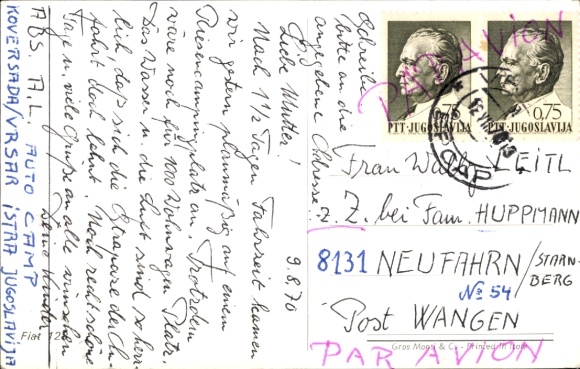 Schreibe
bitte an die
angegebene Adresse
9.8.70
Liebe Mutter!
Nach 1 1/2 Tagen Fahrzeit kamen
wir gestern planmäßig auf einem
Riesencampingplatz an. Trotzdem
wäre noch für 1000 Wohnwagen Platz.
Das Wasser u. die Luft sind so herr-
lich, daß sich die Strapaze der Ein-
fahrt doch lohnt. Noch recht schöne
Tage u. viele Grüße an alle wünschen
Deine Kinder
ABS. A.L. AUTO CAMP
KOVERSADA/VRSAR ISTRA JUGOSLAVIJA
Fiat
0,75
PTT-JUGOSLAVIJA
0,75
PTT-JUGOSLAVIJA
PAR AVION
VRSAR
Frau LEITL
z. Z. bei Fam. HUPPMANN
8131 NEUFAHRN/STARN-
BERG
No 54
Post WANGEN
Printed in Italy
PAR AVION